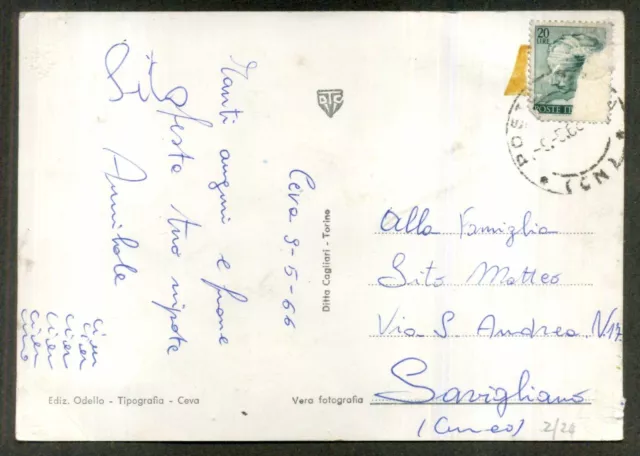 Ceva 9-5-66
Tanti auguri e
festa tuo nipote
Annibale
Ditta Cagliari - Torino
DTC
20
LIRE
POSTE IT
POST
Alla Famiglia
Sito Matteo
Via S. Andrea N 17
Savigliano
(Cuneo) 2/24
Ediz. Odello - Tipografia - Ceva
Vera fotografia